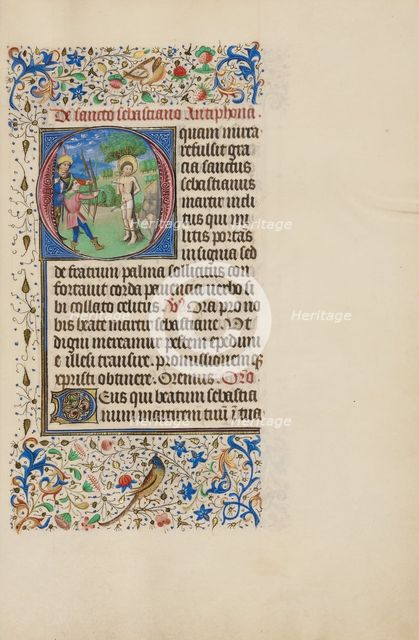 De sancto sebastiano Antiphona.
quam mira
refulsit gra
cia sanctus
sebastianus
martir incli
tus qui mi
litis portas
insignia sed
de fratrum palma sollicitus con
fortauit corda pauencia verbo si
bi collato celitus Ora pro no
bis beate martir sebastiane Ut
digni mereamur pestem epedimie
et illesi transire. promissionemque
xpristi obtinere. Oremus. Oro
Deus qui beatum sebastia
num martirem tuum i tua
Heritage
Heritage
Heritage
Heritage